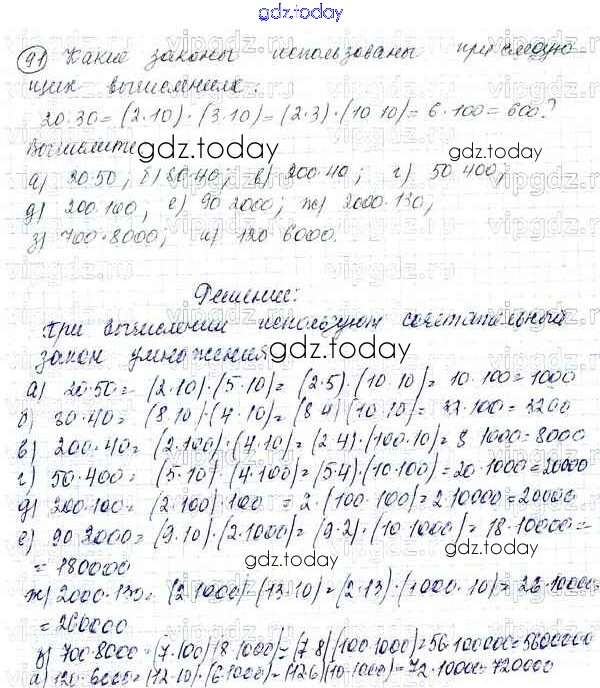 gdz.today
91 Какие законы использованы при следую-
щих вычислениях:
20·30=(2·10)·(3·10)=(2·3)·(10·10)=6·100=600?
Вычислите
gdz.today
а) 20·50; б) 80·40; в) 200·40; г) 50·400;
д) 200·100; е) 90·2000; ж) 2000·130;
з) 700·8000; и) 120·6000.
Решение:
При вычислении используют сочетательный
закон умножения
gdz.today
а) 20·50=(2·10)·(5·10)=(2·5)·(10·10)=10·100=1000
б) 80·40=(8·10)·(4·10)=(8·4)(10·10)=32·100=3200
в) 200·40=(2·100)·(4·10)=(2·4)·(100·10)=8·1000=8000
г) 50·400=(5·10)·(4·100)=(5·4)·(10·100)=20·1000=20000
д) 200·100=(2·100)·100=2·(100·100)=2·10000=20000
е) 90·2000=(9·10)·(2·1000)=(9·2)·(10·1000)=18·10000=
=180000
gdz.today
ж) 2000·130=(2·1000)·(13·10)=(2·13)·(1000·10)=26·10000=
=260000
з) 700·8000=(7·100)(8·1000)=(7·8)(100·1000)=56·100000=5600000
и) 120·6000=(12·10)·(6·1000)=(12·6)(10·1000)=72·10000=720000
gdz.today